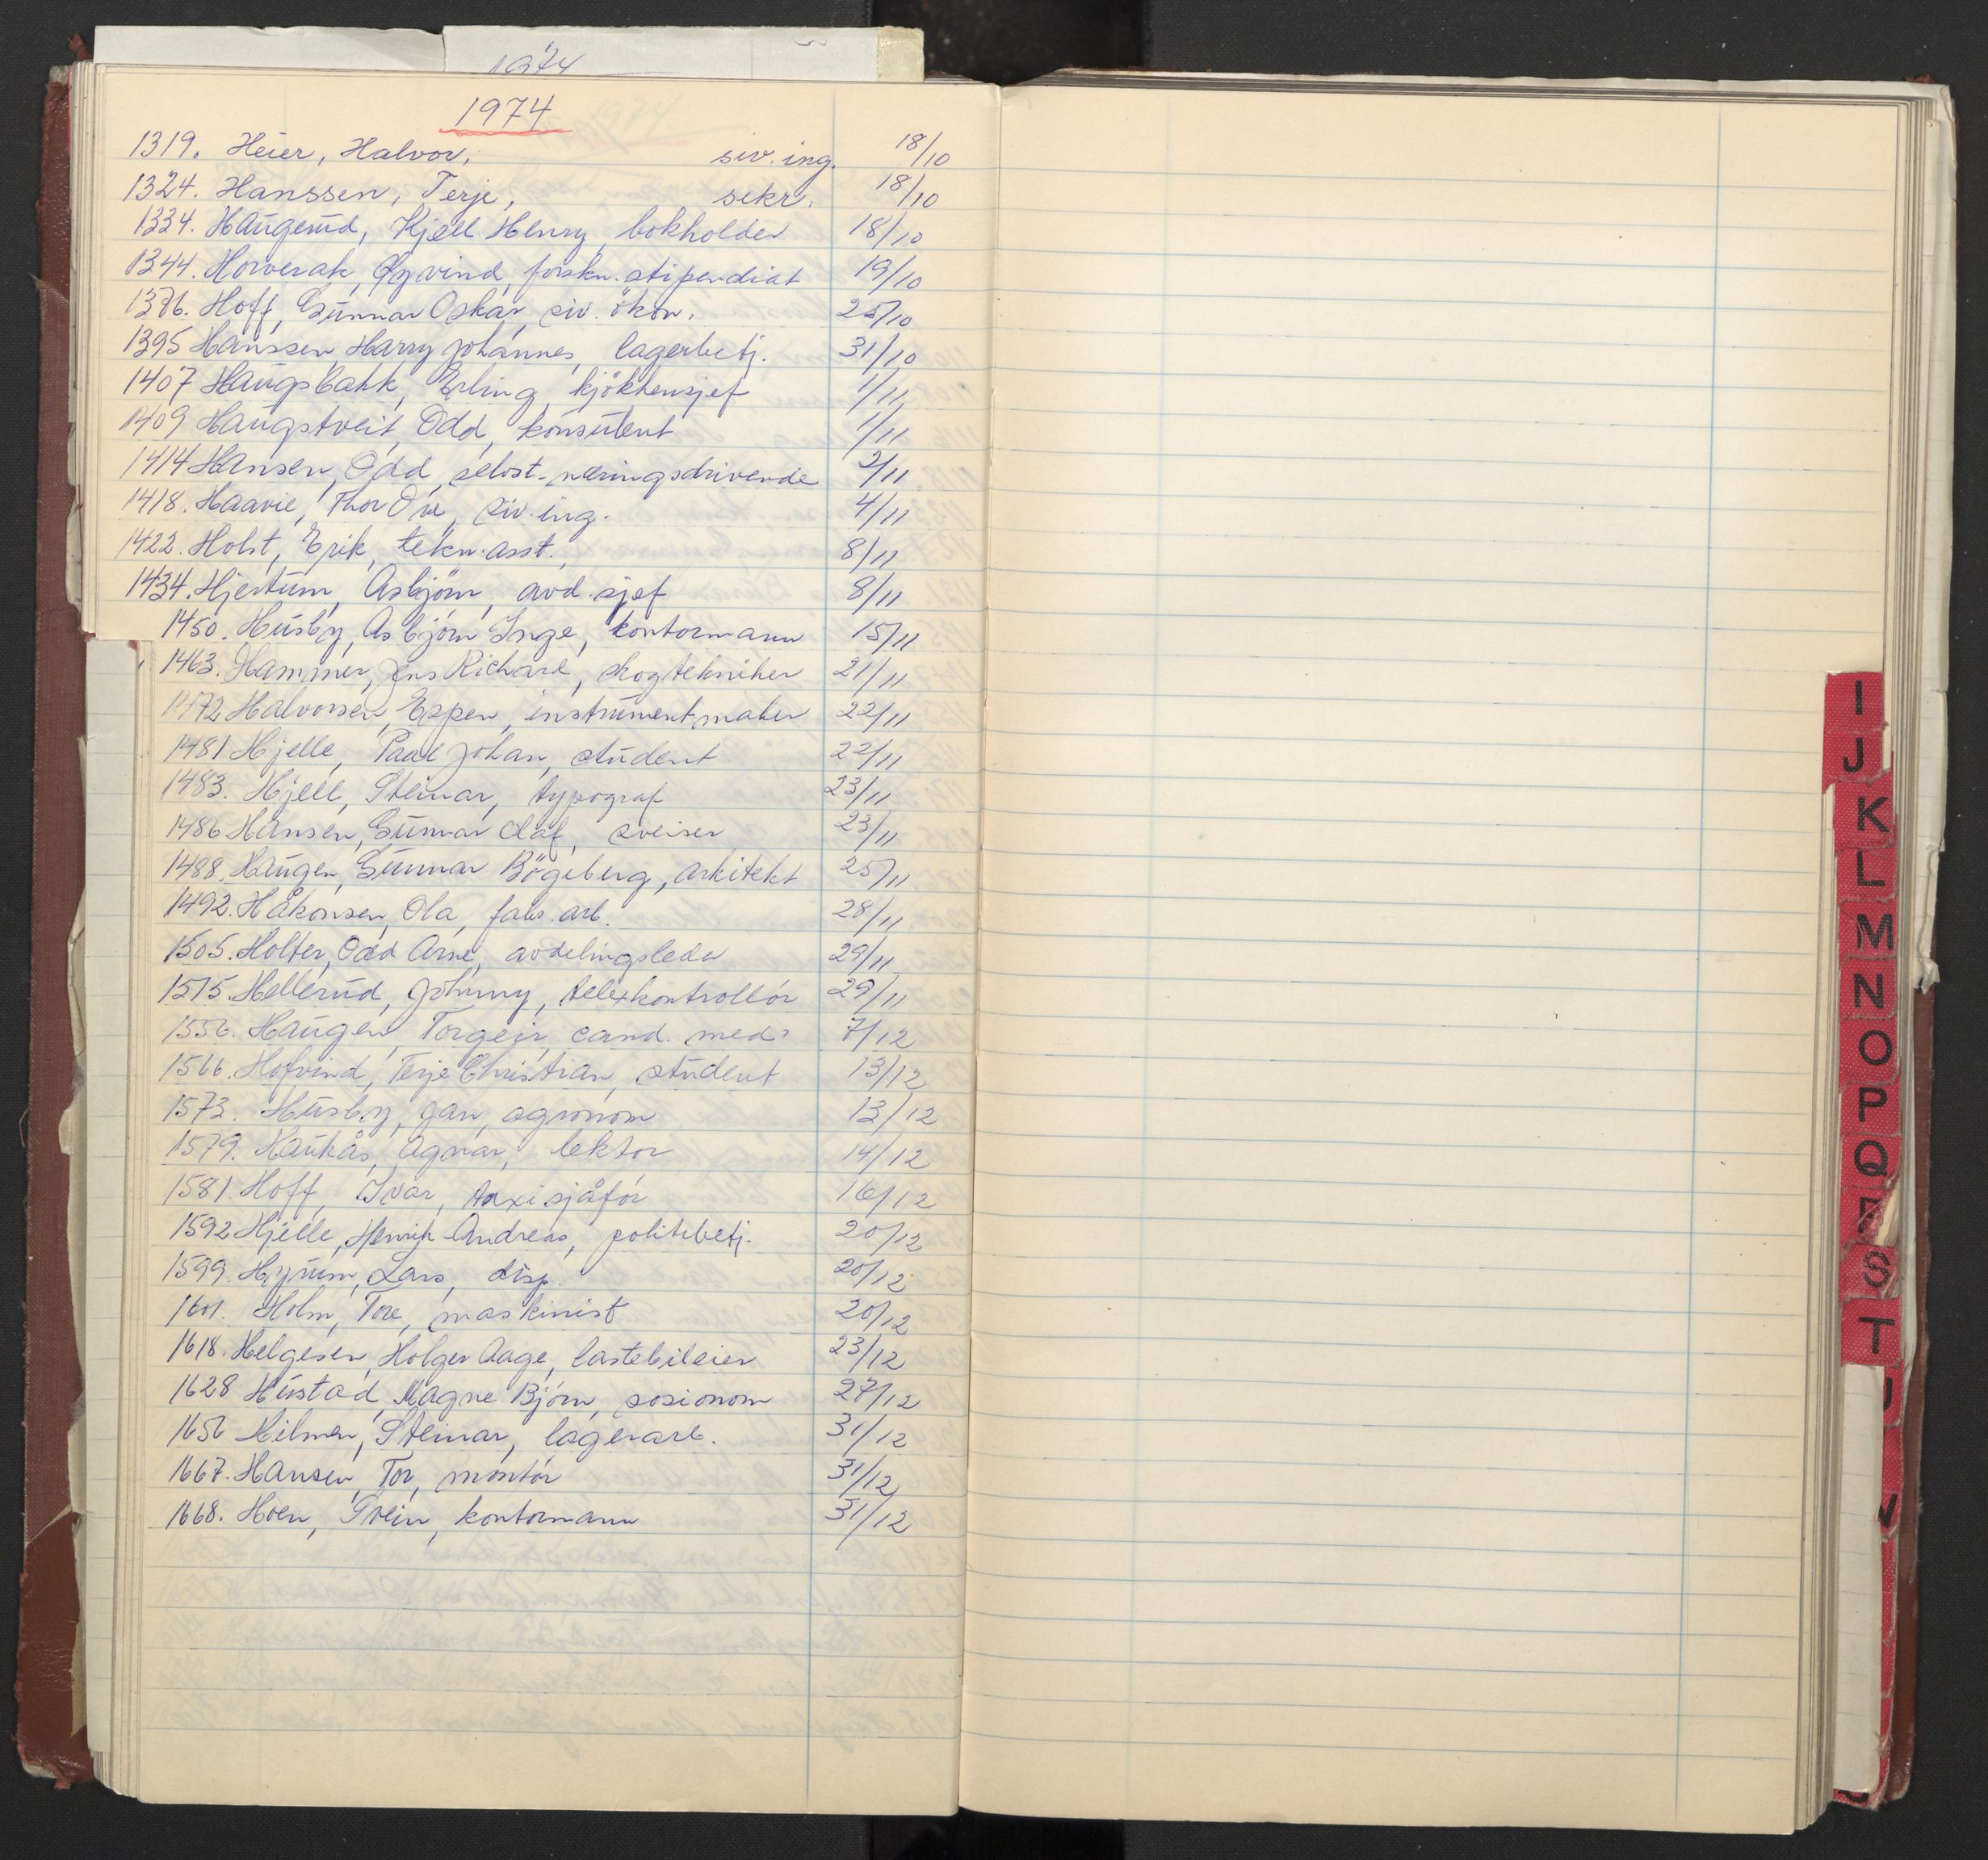 1974
1974
1319. Heier, Halvor, siv. ing. 18/10
1324. Hanssen, Terje, sekr. 18/10
1334. Haugerud, Kjell Henry, bokholder 18/10
1344. Horverak, Øyvind, forskn. stipendiat 19/10
1376. Hoff, Gunnar Oskar, siv. økon. 25/10
1395 Hanssen, Harry Johannes, lagerbetj. 31/10
1407 Haugsbakk, Erling, kjökkensjef 1/11
1409 Haugstveit, Odd, konsulent 1/11
1414 Hansen, Odd, selvst. næringsdrivende 2/11
1418. Haavie, Thor Ove, siv. ing. 4/11
1422. Holst, Erik, tekn. asst. 8/11
1434. Hjertum, Asbjörn, avd. sjef 8/11
1450. Husby, Asbjörn Inge, kontormann 15/11
1463. Hammer, Jens Richard, skogtekniker 21/11
1472 Halvorsen, Espen, instrumentmaker 22/11
1481 Hjelle, Paal Johan, student 22/11
1483. Hjell, Steinar, typograf 23/11
1486 Hansen, Gunnar Olaf, sveiser 23/11
1488. Haugen, Gunnar Bögeberg, arkitekt 25/11
1492. Håkonsen, Ola, fabr. arb. 28/11
1505. Holter, Odd Arne, avdelingsleder 29/11
1515. Hellerud, Johnny, telexkontrollör 29/11
1556. Haugen, Torgeir, cand. med. 7/12
1566. Hofvind, Terje Christian, student 13/12
1573. Husby, Jan, agronom 13/12
1579. Haukås, Agnar, lektor 14/12
1581 Hoff, Ivar, taxisjåför 16/12
1592 Hjelle, Henrik Andreas, politibetj. 20/12
1599. Hyrum, Lars, disp. 20/12
1601. Holm, Tore, maskinist 20/12
1618. Helgesen, Holger Aage, lastebileier 23/12
1628 Hustad, Magne Björn, sosionom 27/12
1656 Hilmen, Steinar, lagerarb. 31/12
1667. Hansen, Tor, montör 31/12
1668. Hoen, Svein, kontormann 31/12
I
J
K
L
M
N
O
P
Q
R
S
T